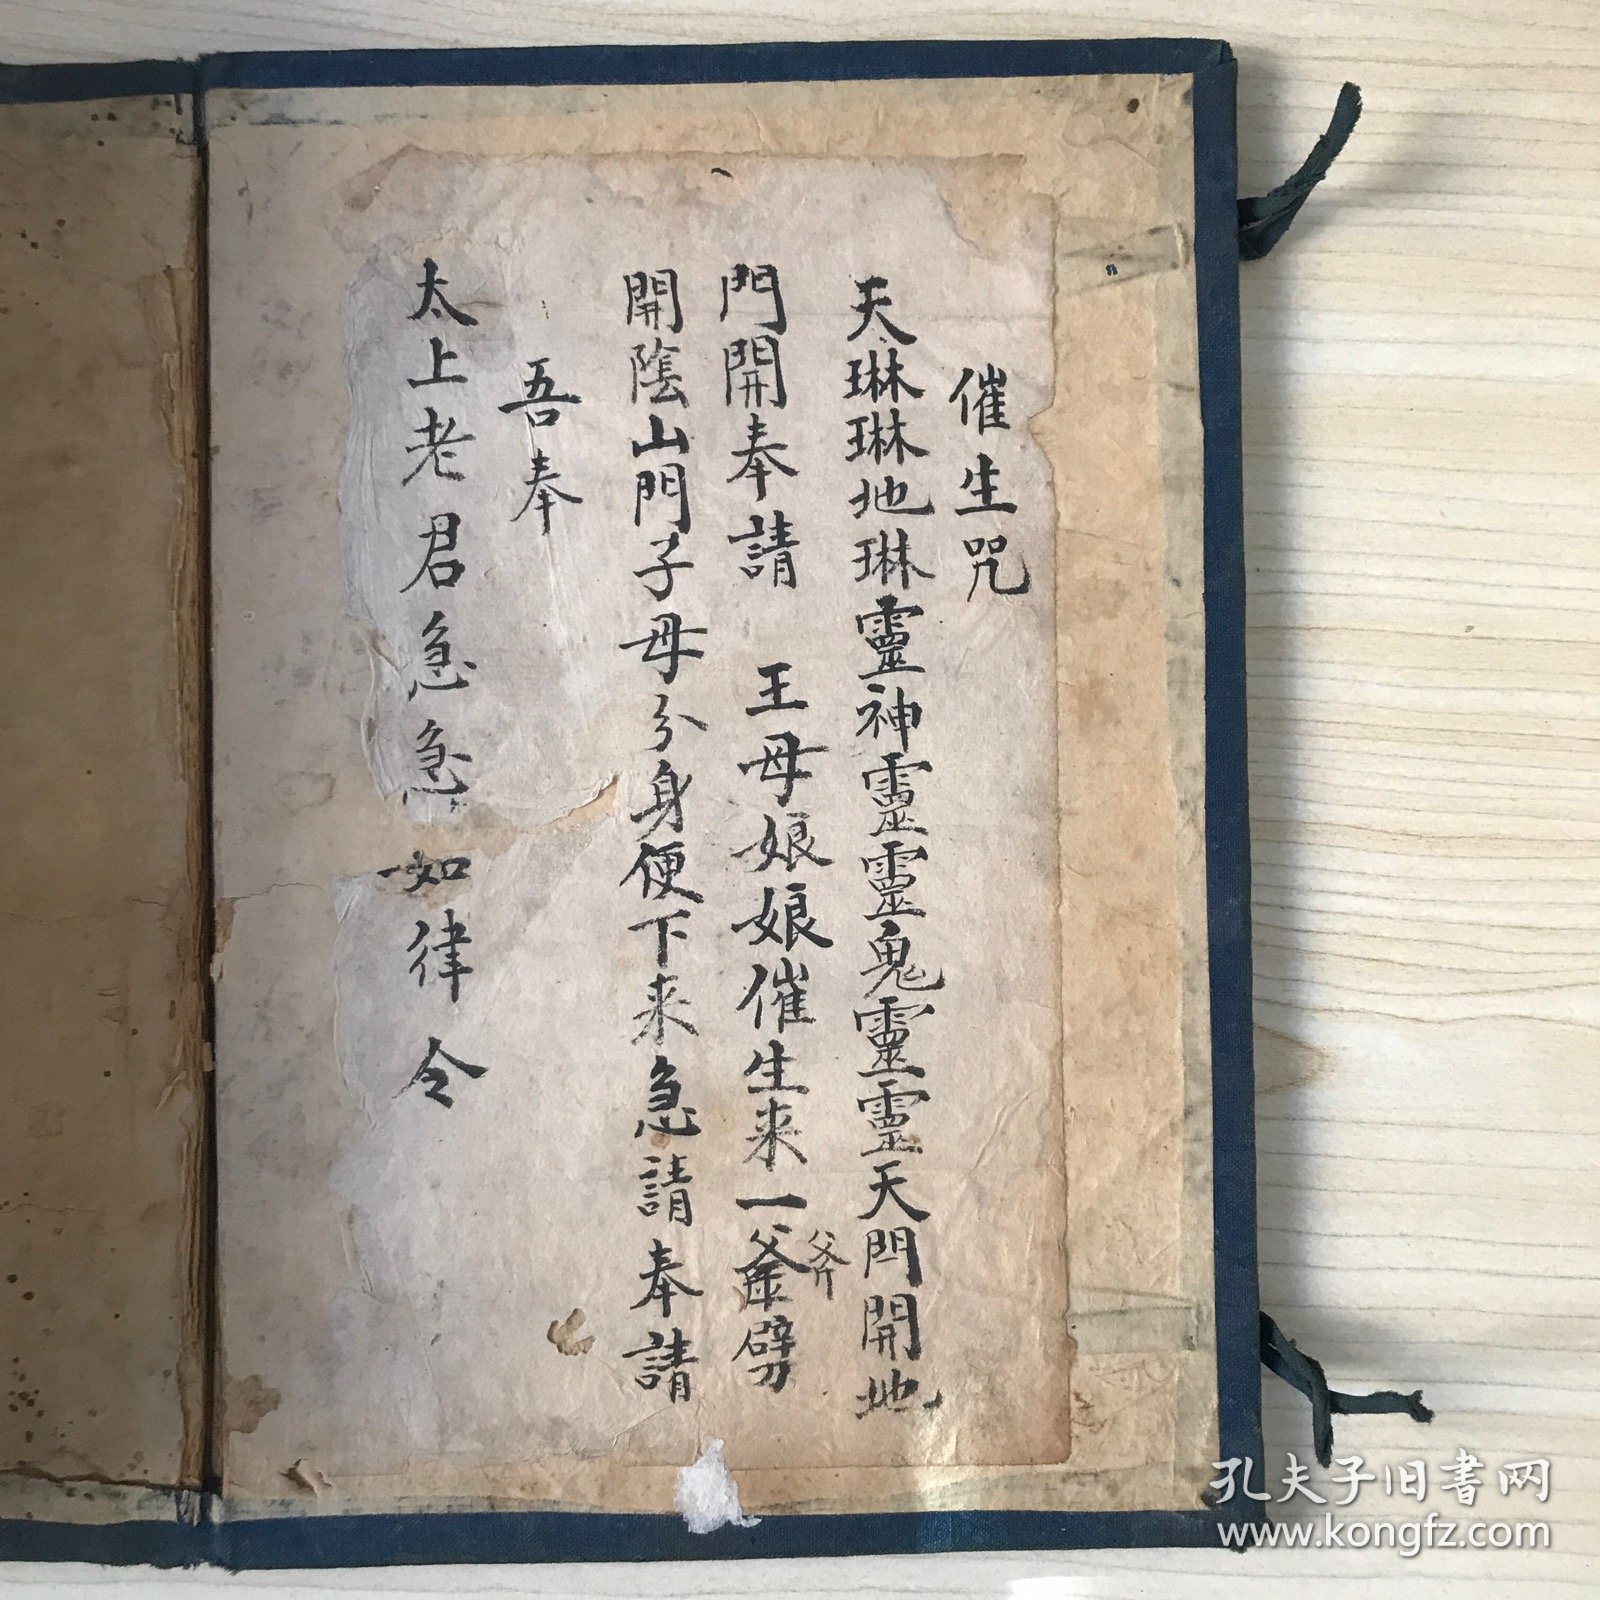 催生咒
天琳琳地琳靈神靈靈鬼靈靈天門開地
門開奉請 王母娘娘催生来一釜劈
斧
開陰山門子母分身便下来急請奉請
吾奉
太上老君急急如律令
孔夫子旧书网
www.kongfz.com